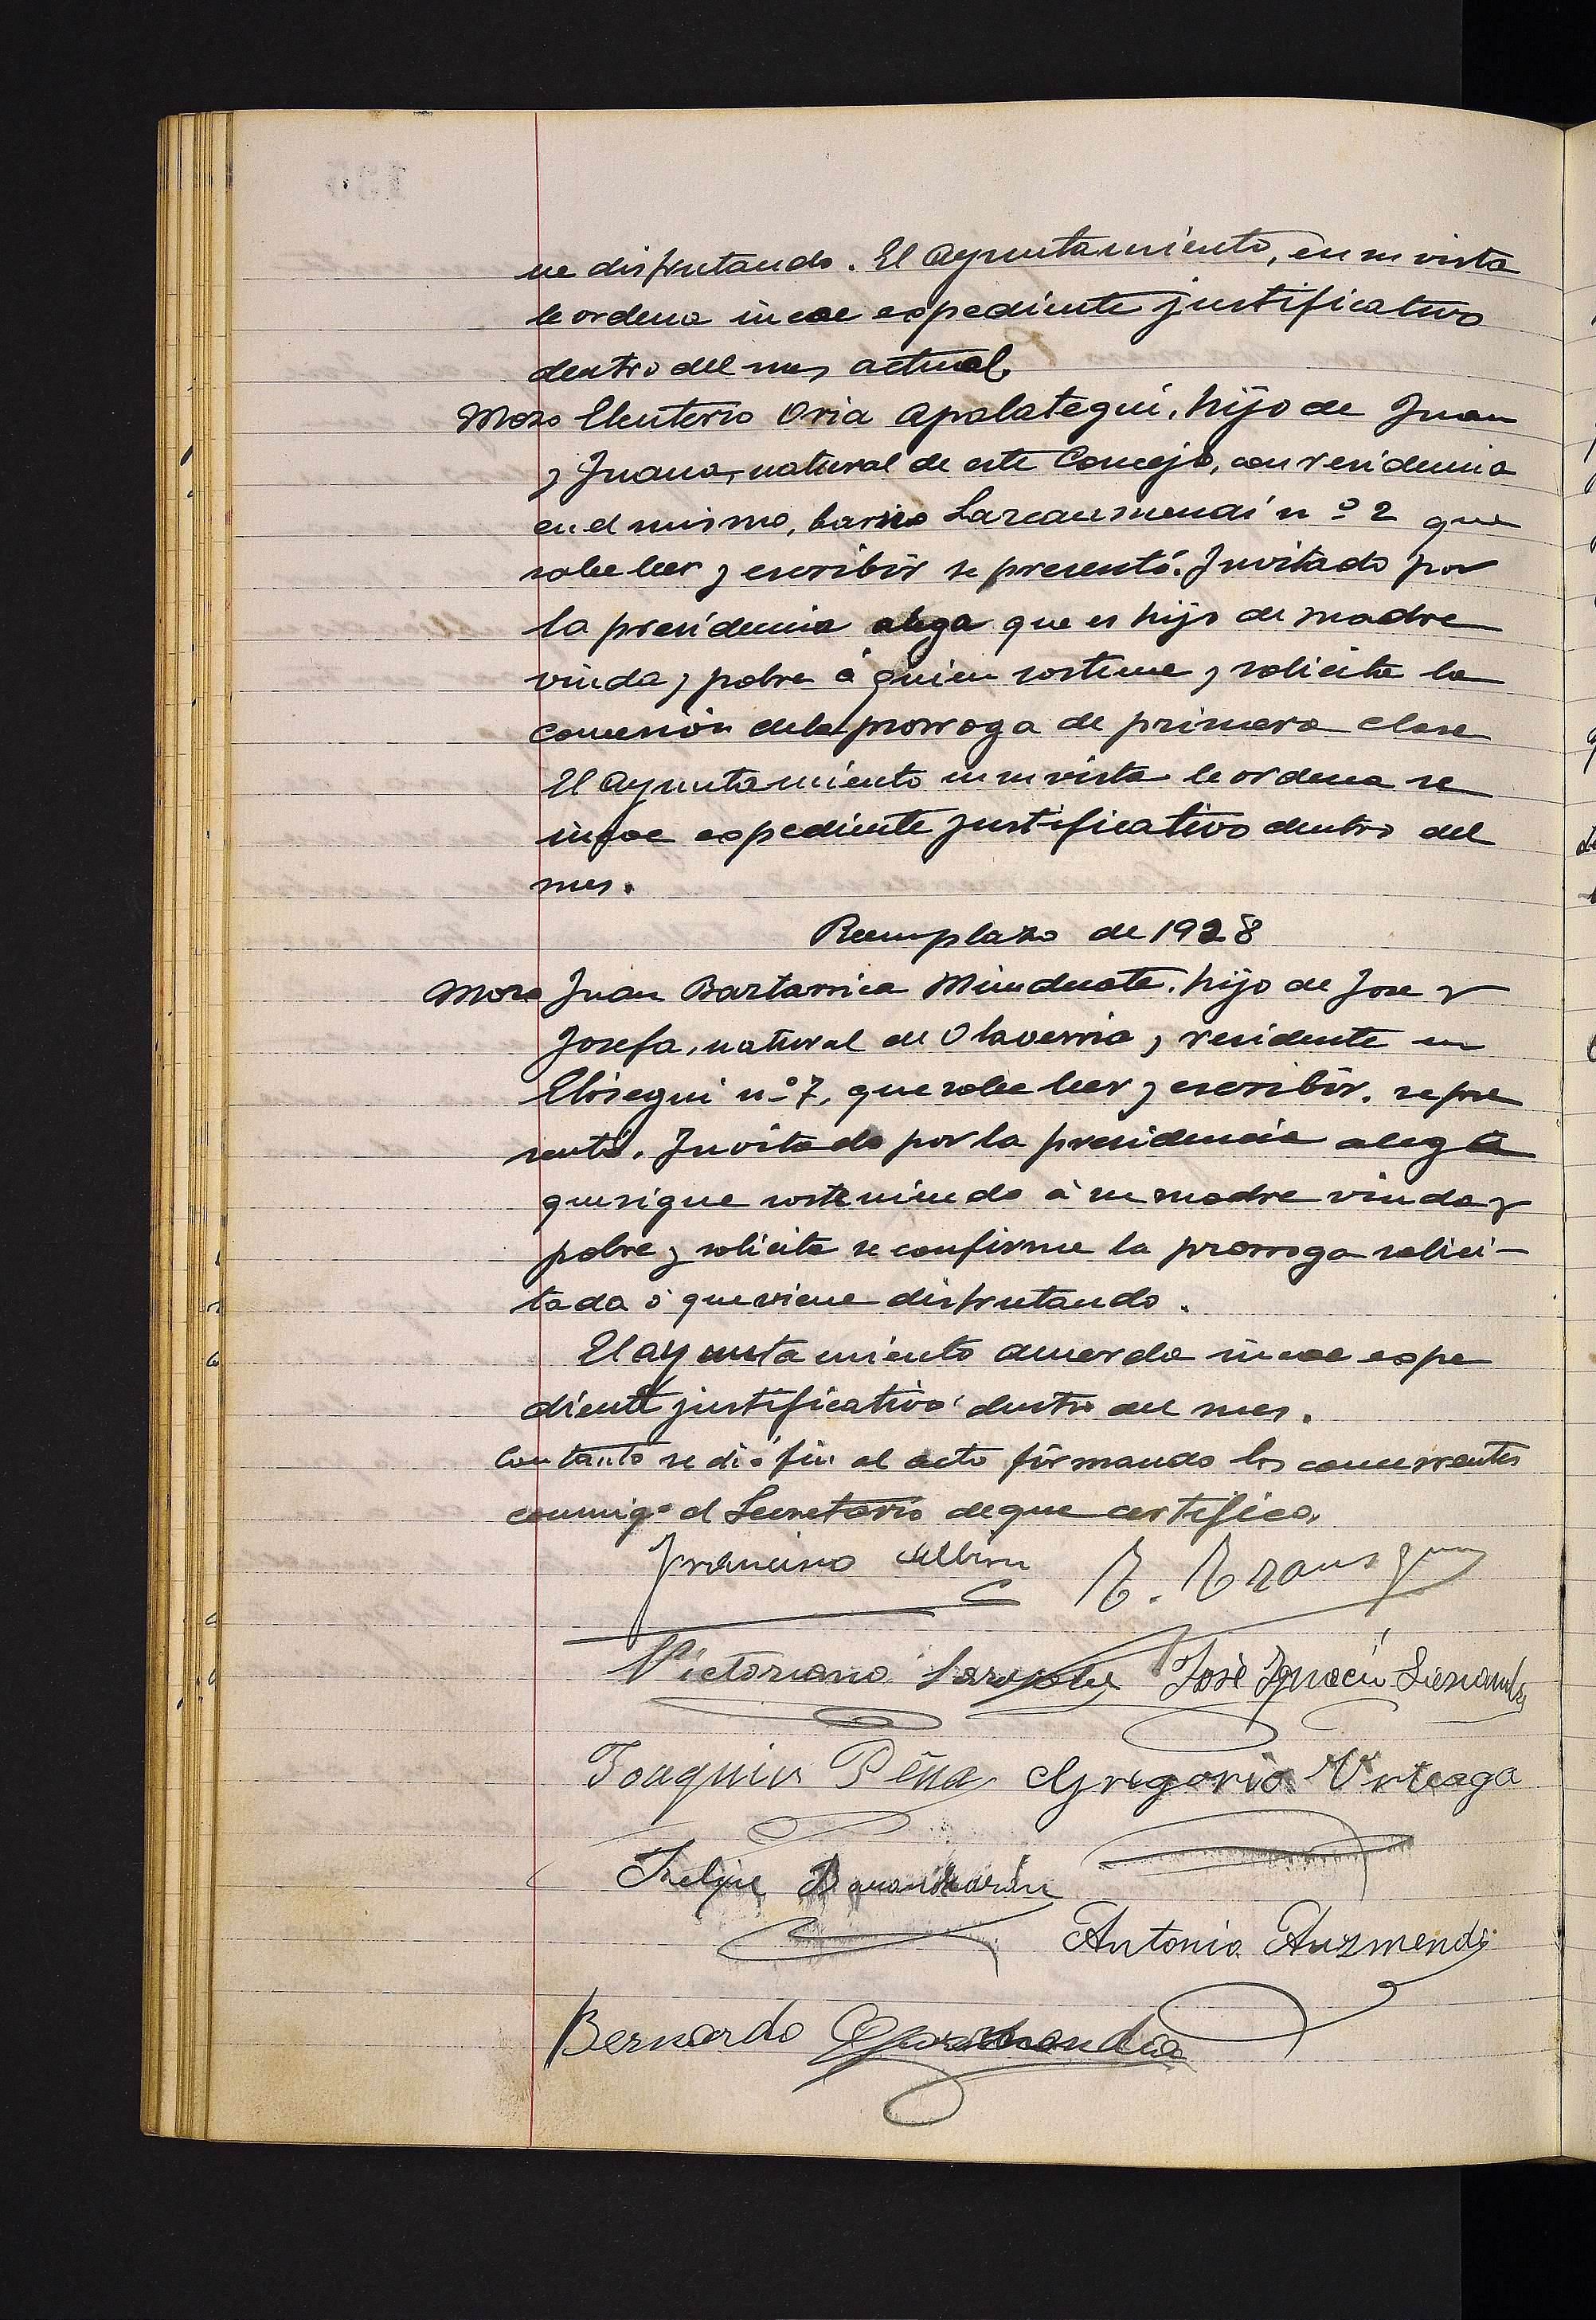 ne disfrutando. El Ayuntamiento, en su vista
le ordena incoe expediente justificativo
dentro del mes actual.
Mozo Eleuterio Oria Apalategui, hijo de Juan
y Juana, natural de este Concejo, con residencia
en el mismo, barrio nº 2 que
sabe leer y escribir se presentó. Invitado por
la presidencia alega que es hijo de madre
viuda y pobre á quien sostiene y solicita la
concesión de la prorroga de primera clase
El Ayuntamiento en su vista le ordena se
incoe expediente justificativo dentro del
mes.
Reemplazo de 1928
Mozo Juan Bastarrica Minduate, hijo de Jose y
Josefa, natural de Olaverria y residente en
Elisegui nº 7, que sabe leer y escribir, se pre
sentó. Invitado por la presidencia alega
que sigue sosteniendo á su madre viuda y
pobre y solicita se confirme la prorroga solici-
tada ó que viene disfrutando.
El ayuntamiento acuerda incoe expe
diente justificativo dentro del mes.
Con tanto se dió fin al acto firmando los concurrentes
conmigo el Secretario de que certifico.
Francisco Albisu
Victoriano José Ignacio
Joaquin Peña Gregorio Urteaga
Felipe Barandiarán
Antonio Auzmendi
Bernardo Garmendia